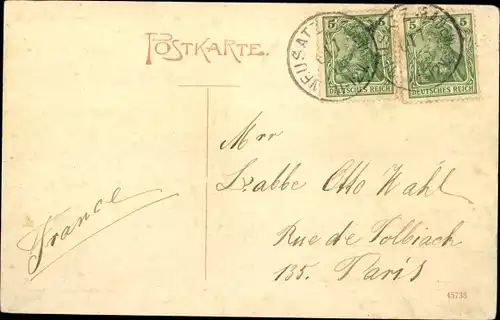 POSTKARTE.
5 5
DEUTSCHES REICH
5
DEUTSCHES REICH
NEUSATZ
Mrr
L'abbe Otto Wahl
Rue de Tolbiach
135. Paris
France
45738